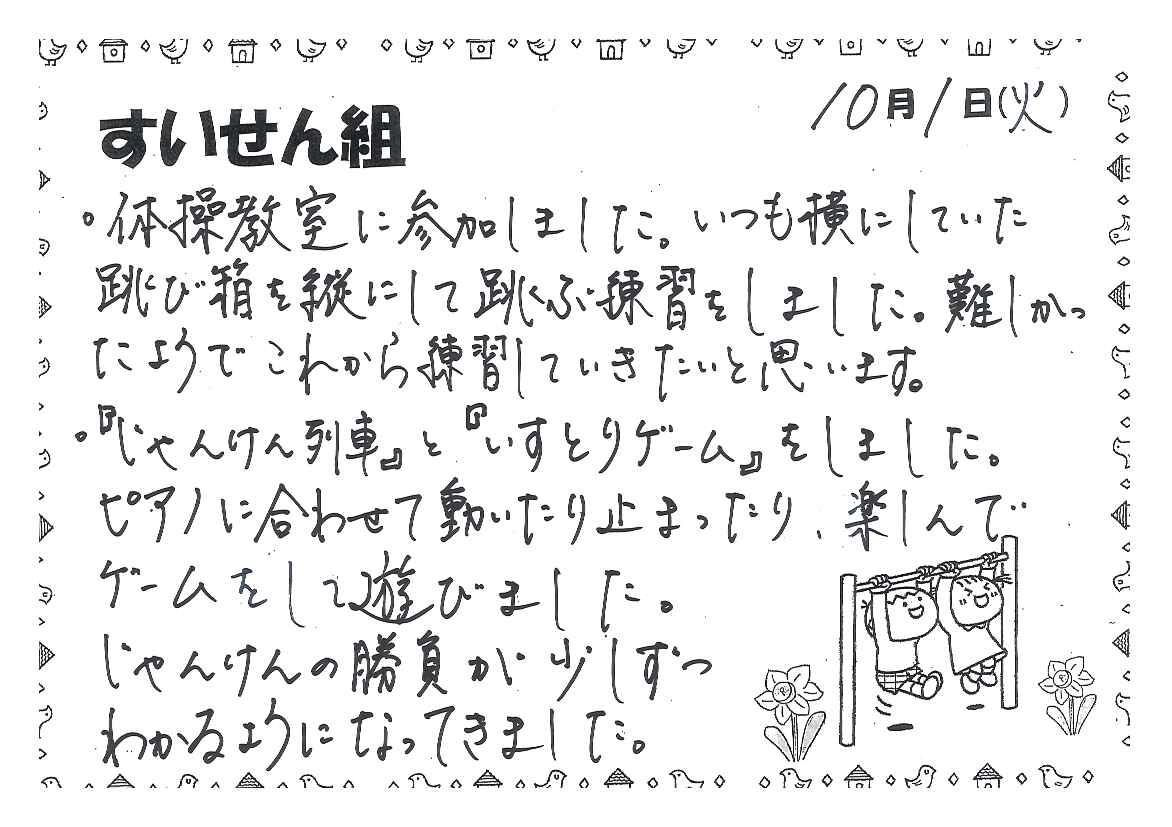 10月1日(火)
すいせん組
。体操教室に参加しました。いつも横にしていた
跳び箱を縦にして跳ぶ練習をしました。難しかっ
たようでこれから練習していきたいと思います。
。『じゃんけん列車』と『いすとりゲーム』をしました。
ピアノに合わせて動いたり止まったり、楽しんで
ゲームをして遊びました。
じゃんけんの勝負が少しずつ
わかるようになってきました。